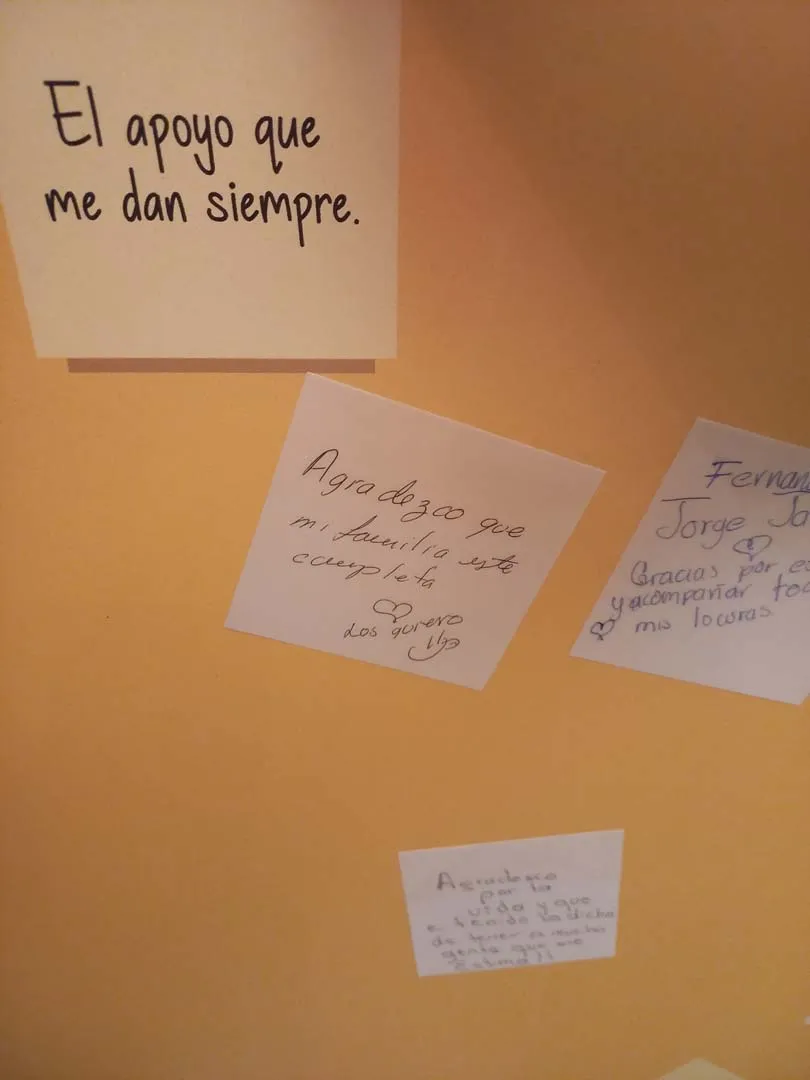 El apoyo que
me dan siempre.
Agradezco que
mi familia este
completa
Los quiero
Fernan
Jorge Ja
Gracias por es
y acompañar tod
mis locuras
Agradesco
por la
vida y que
e tenido la dicha
de tener a mucha
gente que me
Estima